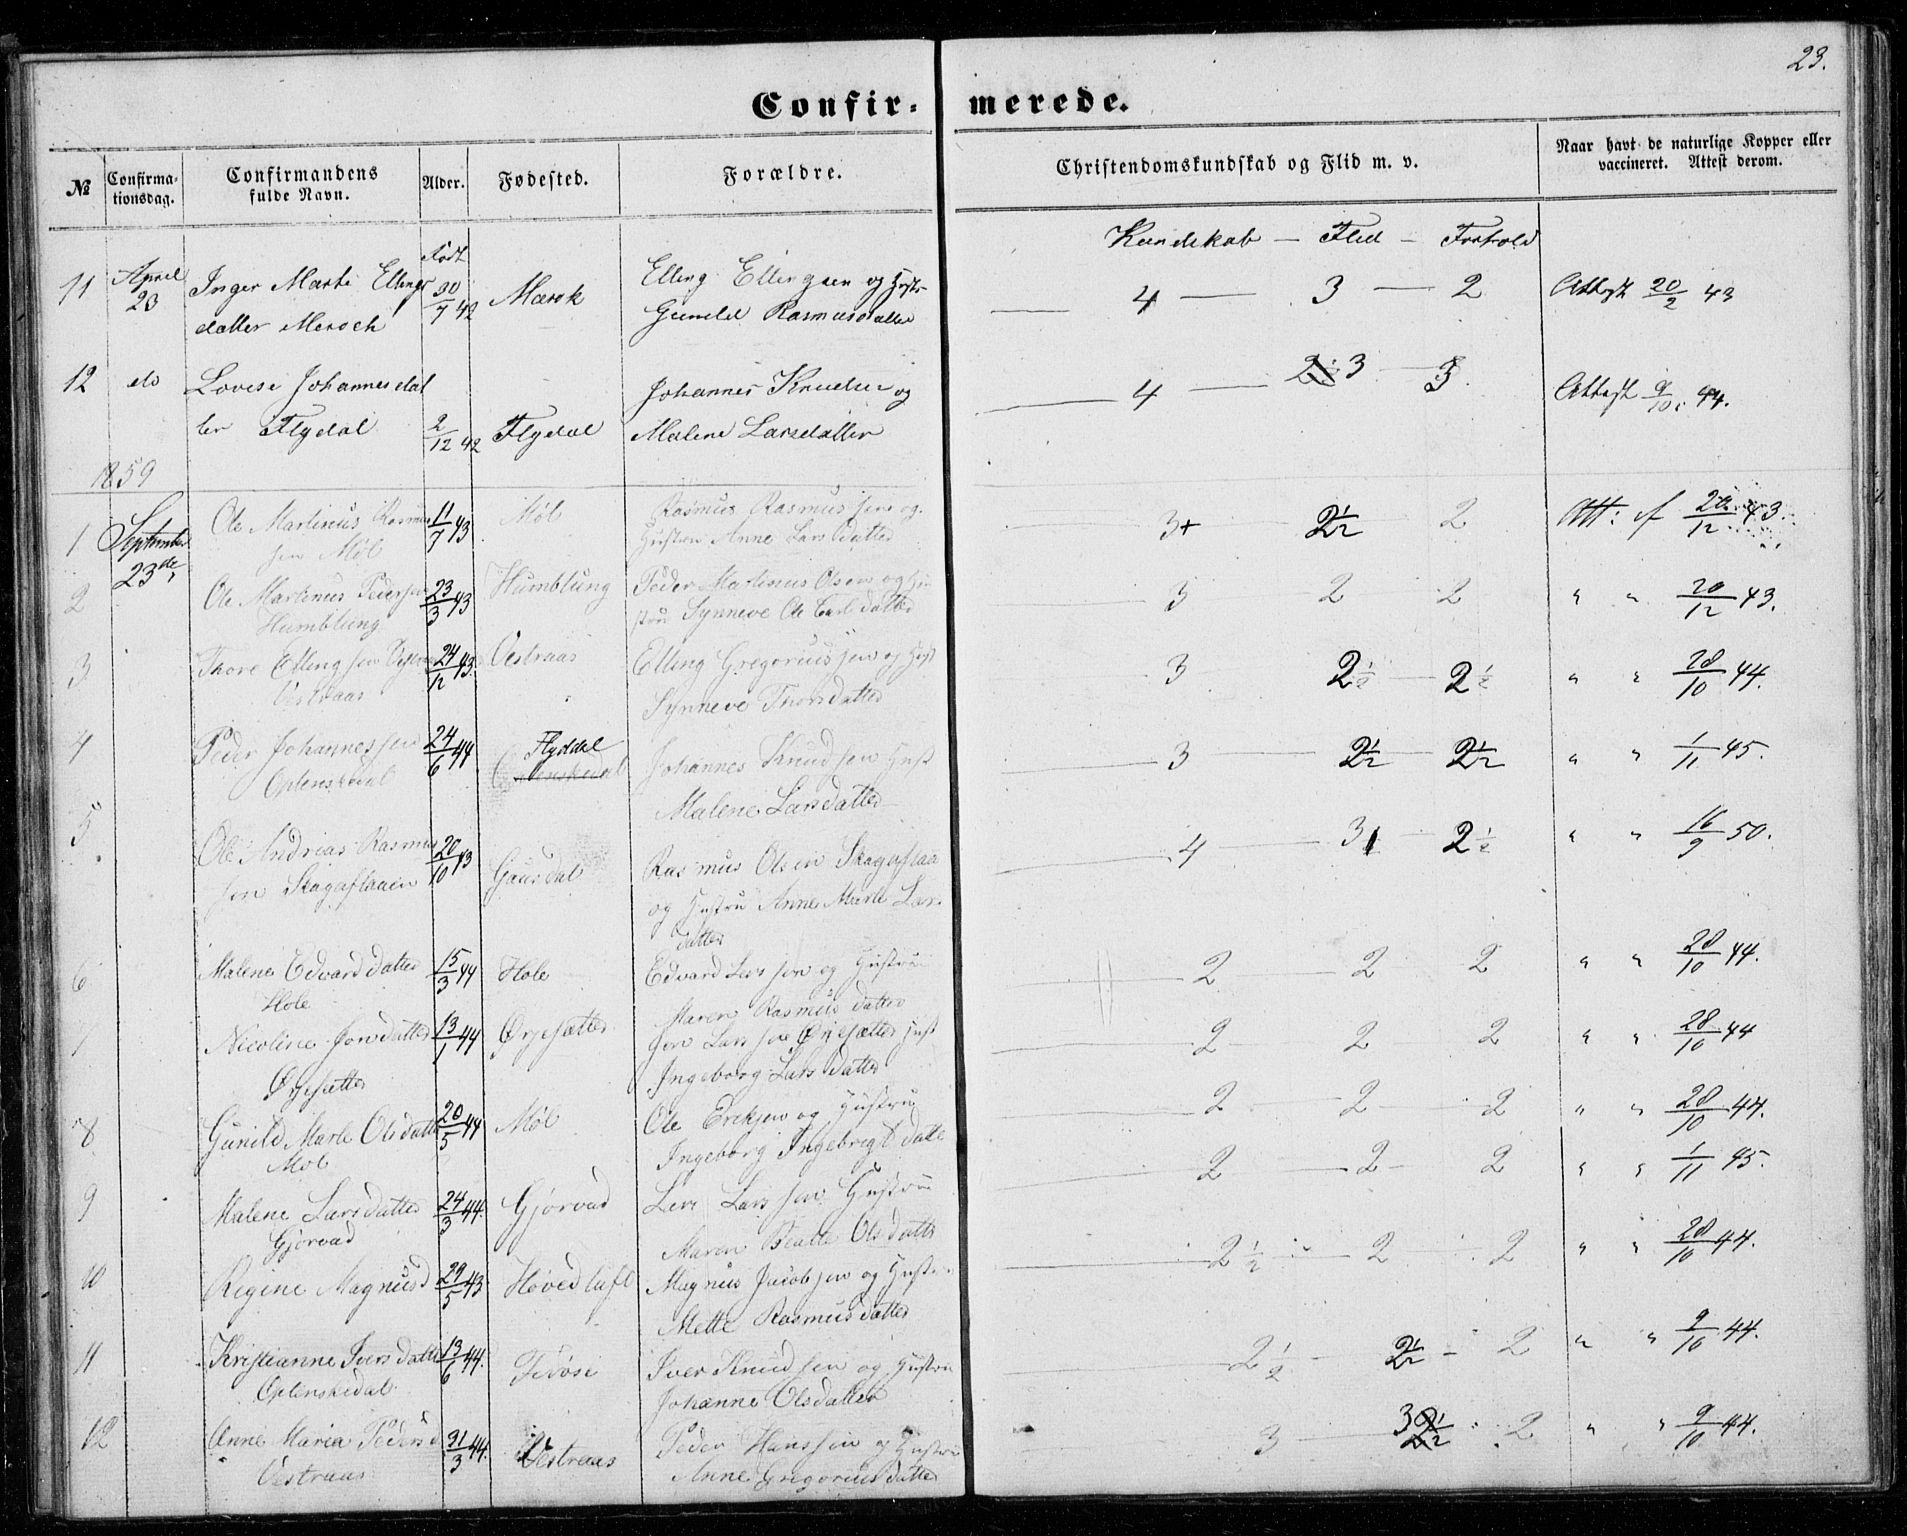 23.
Confirmerede.
№ Confirmationsdag. Confirmandens fulde Navn. Alder. Fødested. Forældre. Christendomskundskab og Flid m. v. Naar havt de naturlige Kopper eller vaccineret. Attest derom.
født Kundskab — Flid — Forhold
11 April 23 Inger Marte Ellings 30/7 42 Marok Elling Ellingsen og Hustr 4 — 3 — 2 Attest 20/2 43
datter Meroch Gunild Rasmusdatter
12 do Lovise Johannesdat Johannes Knudsen og 4 — 3 — 3. Attest 9/10 44.
ter Flydal 2/12 42 Flydal Malene Larsdatter
1859
1 September 23de, Ole Martinus Rasmus 11/7 43 Møl Rasmus Rasmussen og 3+ 2½ 2 Att: af 20/12 43.
sen Møl Hustru Anne Larsdatter
2 Ole Martinus Pedersen 23/3 43 Humblung Peder Martinus Olsen og Hu 3 2 2 " " 20/12 43.
Humblung stru Synneve Ole Carl datter
3 Thore Ellingsen 24/12 43. Vestraas Elling Gregoriussen og Hust 3 2½ 2½ " " 28/10 44.
Vestraas Synneve Thorsdatter
4 Peder Johannessen 24/6 44 Flyddal Johannes Knudsen Hust 3 2½ 2½ " " 1/11 45.
Oplenskedal Malene Larsdatter
5. Ole Andreas Rasmus 20/10 43 Gausdal Rasmus Olsen Skagaflaa 4 3 2½ " " 16/9 50.
sen Skagaflaaen og Hustru Anne Marte Lars
datter
6 Malene Edvarddatter 15/3 44 Hole Edvard Larssen og Hustru 2 2 2 " " 28/10 44.
Hole Maren Rasmusdatter
7 Nicoline Jonsdatter 13/1 44 Ørjesætter Jon Larssen Ørjesætter Hust 2 2 2 " " 28/10 44
Ørjesætter Ingeborg Larsdatter
8 Gunild Marte Olsdatter 20/5 44 Møl Ole Eriksen og Hustru 2 2 2 " " 28/10 44.
Møl Ingeborg Ingebrigtdatte
9 Malene Larsdatter 24/3 44. Gjørvad Lars Larssen Hustru 2 2 2 " " 1/11 45.
Gjørvad Maren Beate Olsdatter
10 Regine Magnusd 29/5 43 Hovedtuft Magnus Jacobsen og Hustr 2½ 2 2 " " 28/10 44.
Mette Rasmusdatter
11 Kristianne Iversdatter 13/6 44. Iver Knudsen og Hustru 2½ 2½ 2 " " 9/10 44.
Oplenskedal Johanne Olsdatter
12 Anne Maria Pedersd 31/3 44. Vestraas Peder Hanssen og Hustru 3 3 2 " " 9/10 44.
Vestraas Anne Gregoriusdatter